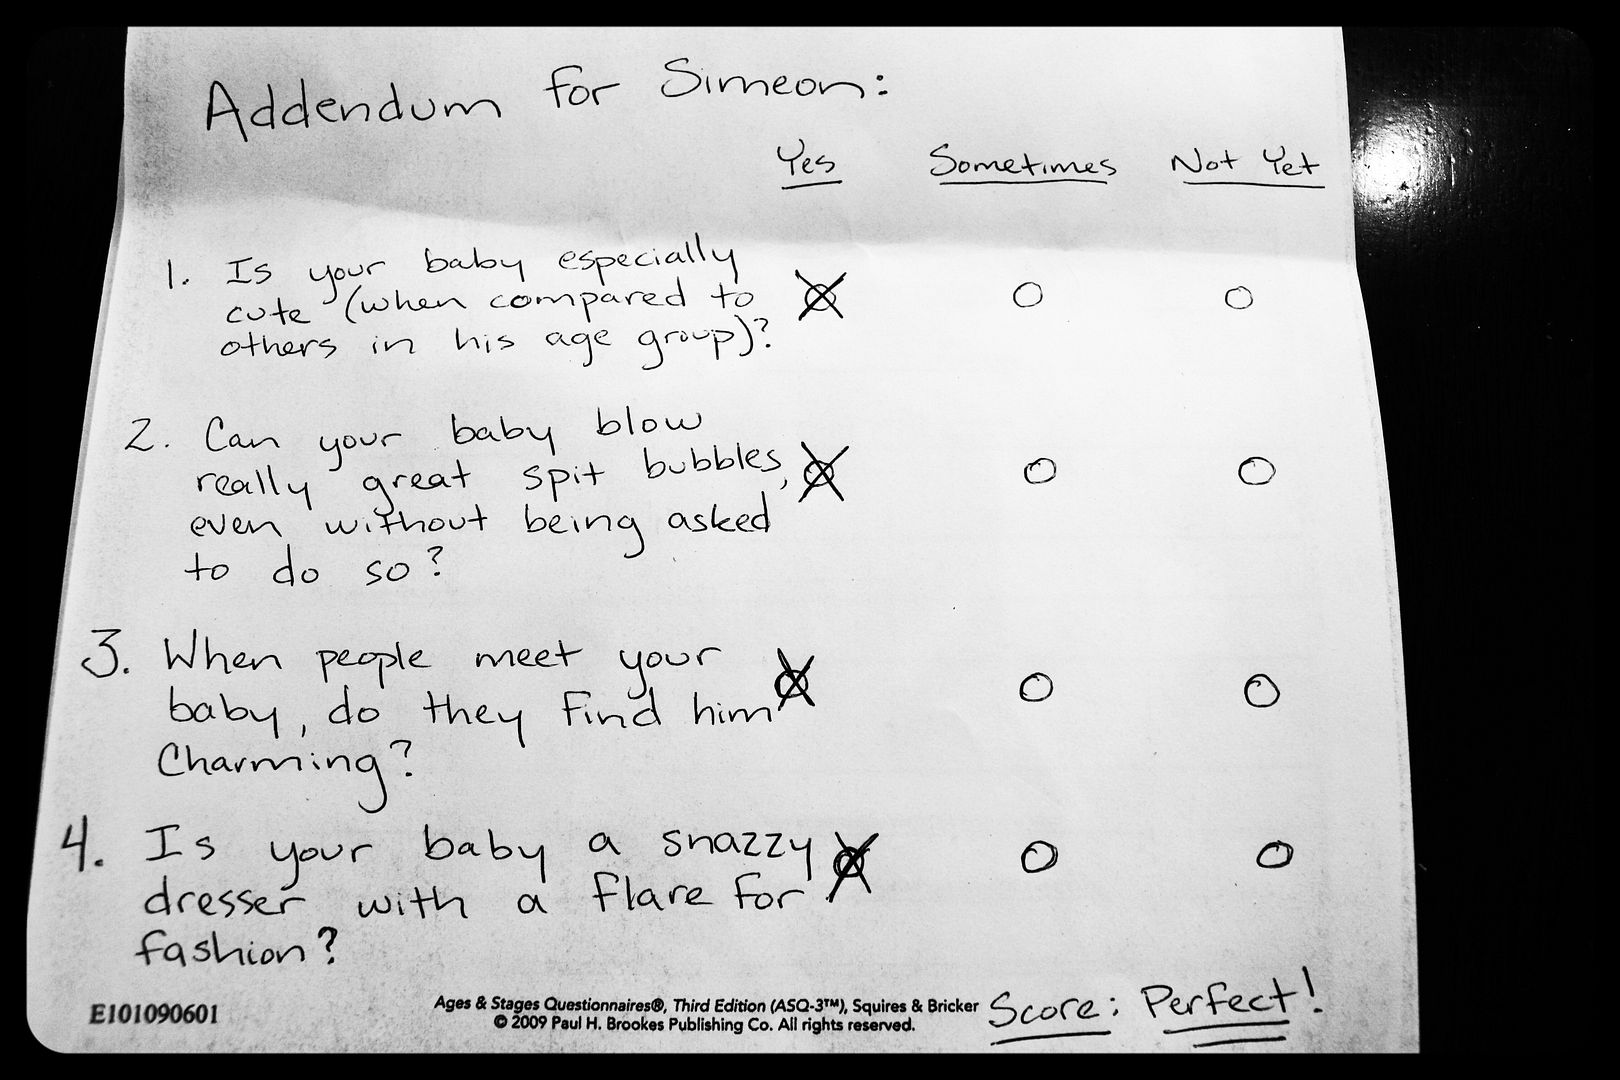 Addendum for Simeon:
Yes Sometimes Not Yet
1. Is your baby especially
cute (when compared to
others in his age group)?
2. Can your baby blow
really great spit bubbles,
even without being asked
to do so?
3. When people meet your
baby, do they find him
Charming?
4. Is your baby a snazzy
dresser with a flare for
fashion?
E101090601
Ages & Stages Questionnaires®, Third Edition (ASQ-3™), Squires & Bricker
© 2009 Paul H. Brookes Publishing Co. All rights reserved.
Score: Perfect!